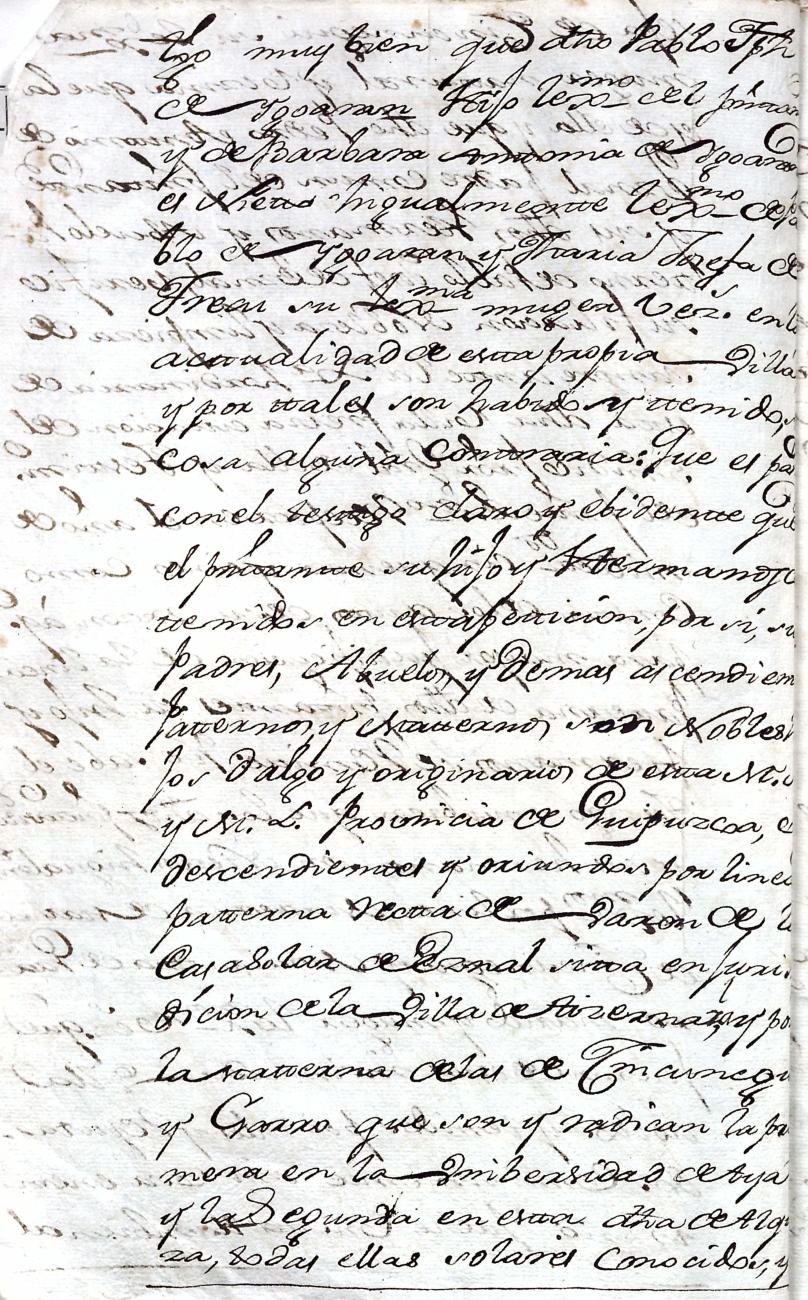 tgo muy bien que dho Pablo Jph
de Ygaran Hijo lexmo del prnte
y de Barbara Antonia de Ygaran
es Nieto Ingualmente lexmo de
blo de Ygaran y Maria Josefa de
su lexma muger vezs. en
actualidad de esta propia Villa
y por ttales son habidos y ttenidos,
cosa alguna Contraria: Que es
con el testigo claro y ebidente que
el prntante su hijo y Hermano
ttenidos en esta petticion, por si, su
Padres, Abuelos, y Demas ascendien
Patternos y Matternos son Nobles
jos Dalgo y originarios de esta M. 
y M. L. Provincia de Guipuzcoa,
descendientes y oriundos por linea
patterna rectta de Varon de
Casa Solar de Eznal sitta en Juri
dicion de la Villa de Aizarna, y po
la matterna de las de
y Garro que son y radican la pri
mera en la Unibersidad de Aya
y la Segunda en esta dha de
za, todas ellas solares Conocidos, y